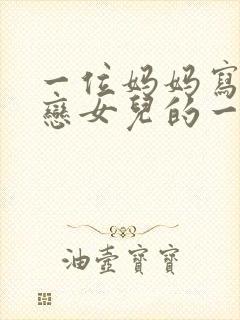 一位妈妈寫
戀女兒的一
油壺寶寶